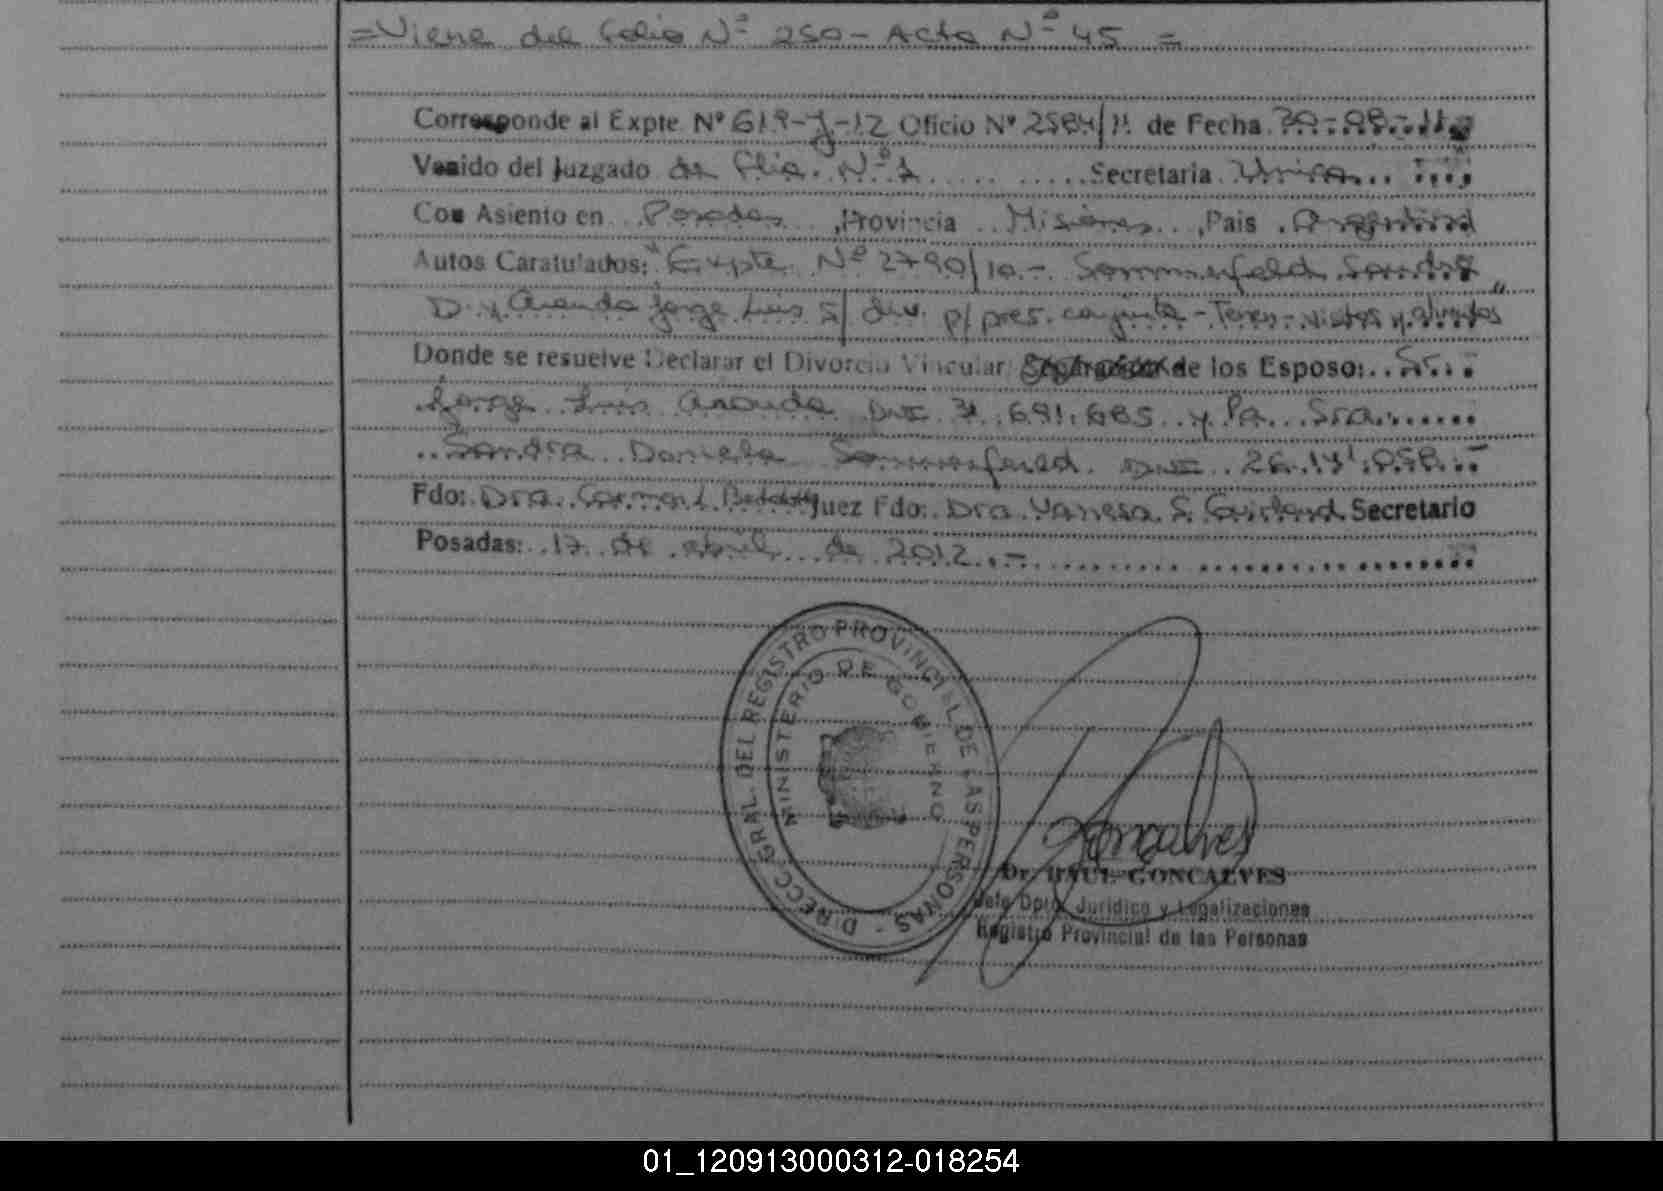 =Viene del Folio Nº 250 - Acta Nº 45 =
Corresponde al Expte Nº 619-J-12 Oficio Nº 2584/11 de Fecha 30-08-11
Venido del Juzgado de Flia. Nº 1 Secretaria Unica
Con Asiento en Posadas, Provincia Misiones, Pais Argentina
Autos Caratulados: "Expte Nº 2790/10.- Sommerfeld Sandra
D. y Aranda Jorge Luis s/ div. p/ pres. conjunta - Tenen - visitas y alimentos"
Donde se resuelve Declarar el Divorcio Vincular de los Esposo: Sr.
Jorge Luis Aranda DNI 31.691.685 y la Sra
Sandra Daniela Sommerfeld DNI 26.
Fdo: Dra. Carmen L. Juez Fdo: Dra. Vanesa S. Secretario
Posadas: 17 de abril de 2012.-
DIRECC. GRAL. DEL REGISTRO PROVINCIAL DE LAS PERSONAS -
MINISTERIO DE GOBIERNO
Goncalves
Dr. RAUL GONCALVES
Jefe Dpto. Juridico y Legalizaciones
Registro Provincial de las Personas
01_120913000312-018254